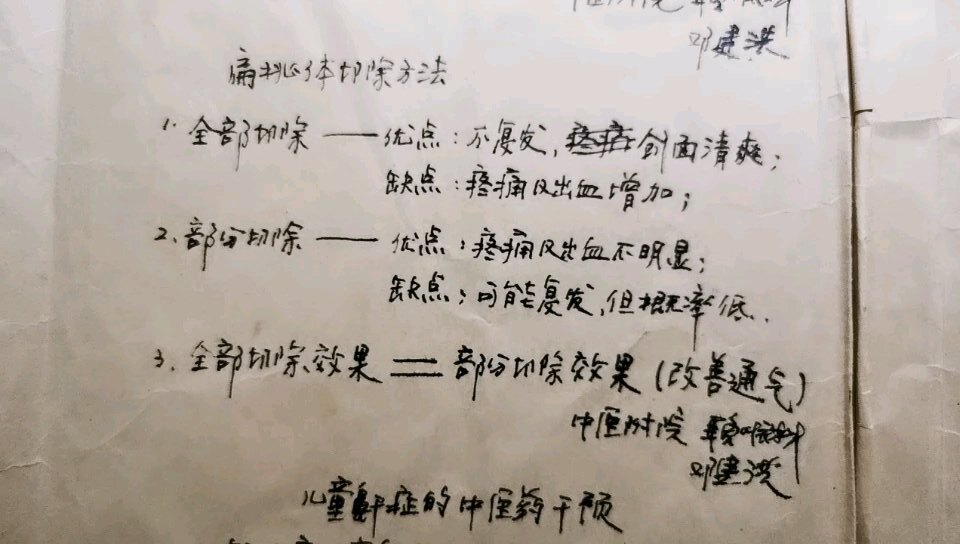 中医附院 耳鼻喉科
邓建洪
扁桃体切除方法
1. 全部切除 —— 优点：不复发，疼痛创面清爽；
缺点：疼痛及出血增加；
2. 部分切除 —— 优点：疼痛及出血不明显；
缺点：可能复发，但概率低.
3. 全部切除效果 = 部分切除效果（改善通气）
中医附院 耳鼻咽喉科
邓建洪
儿童鼾症的中医药干预